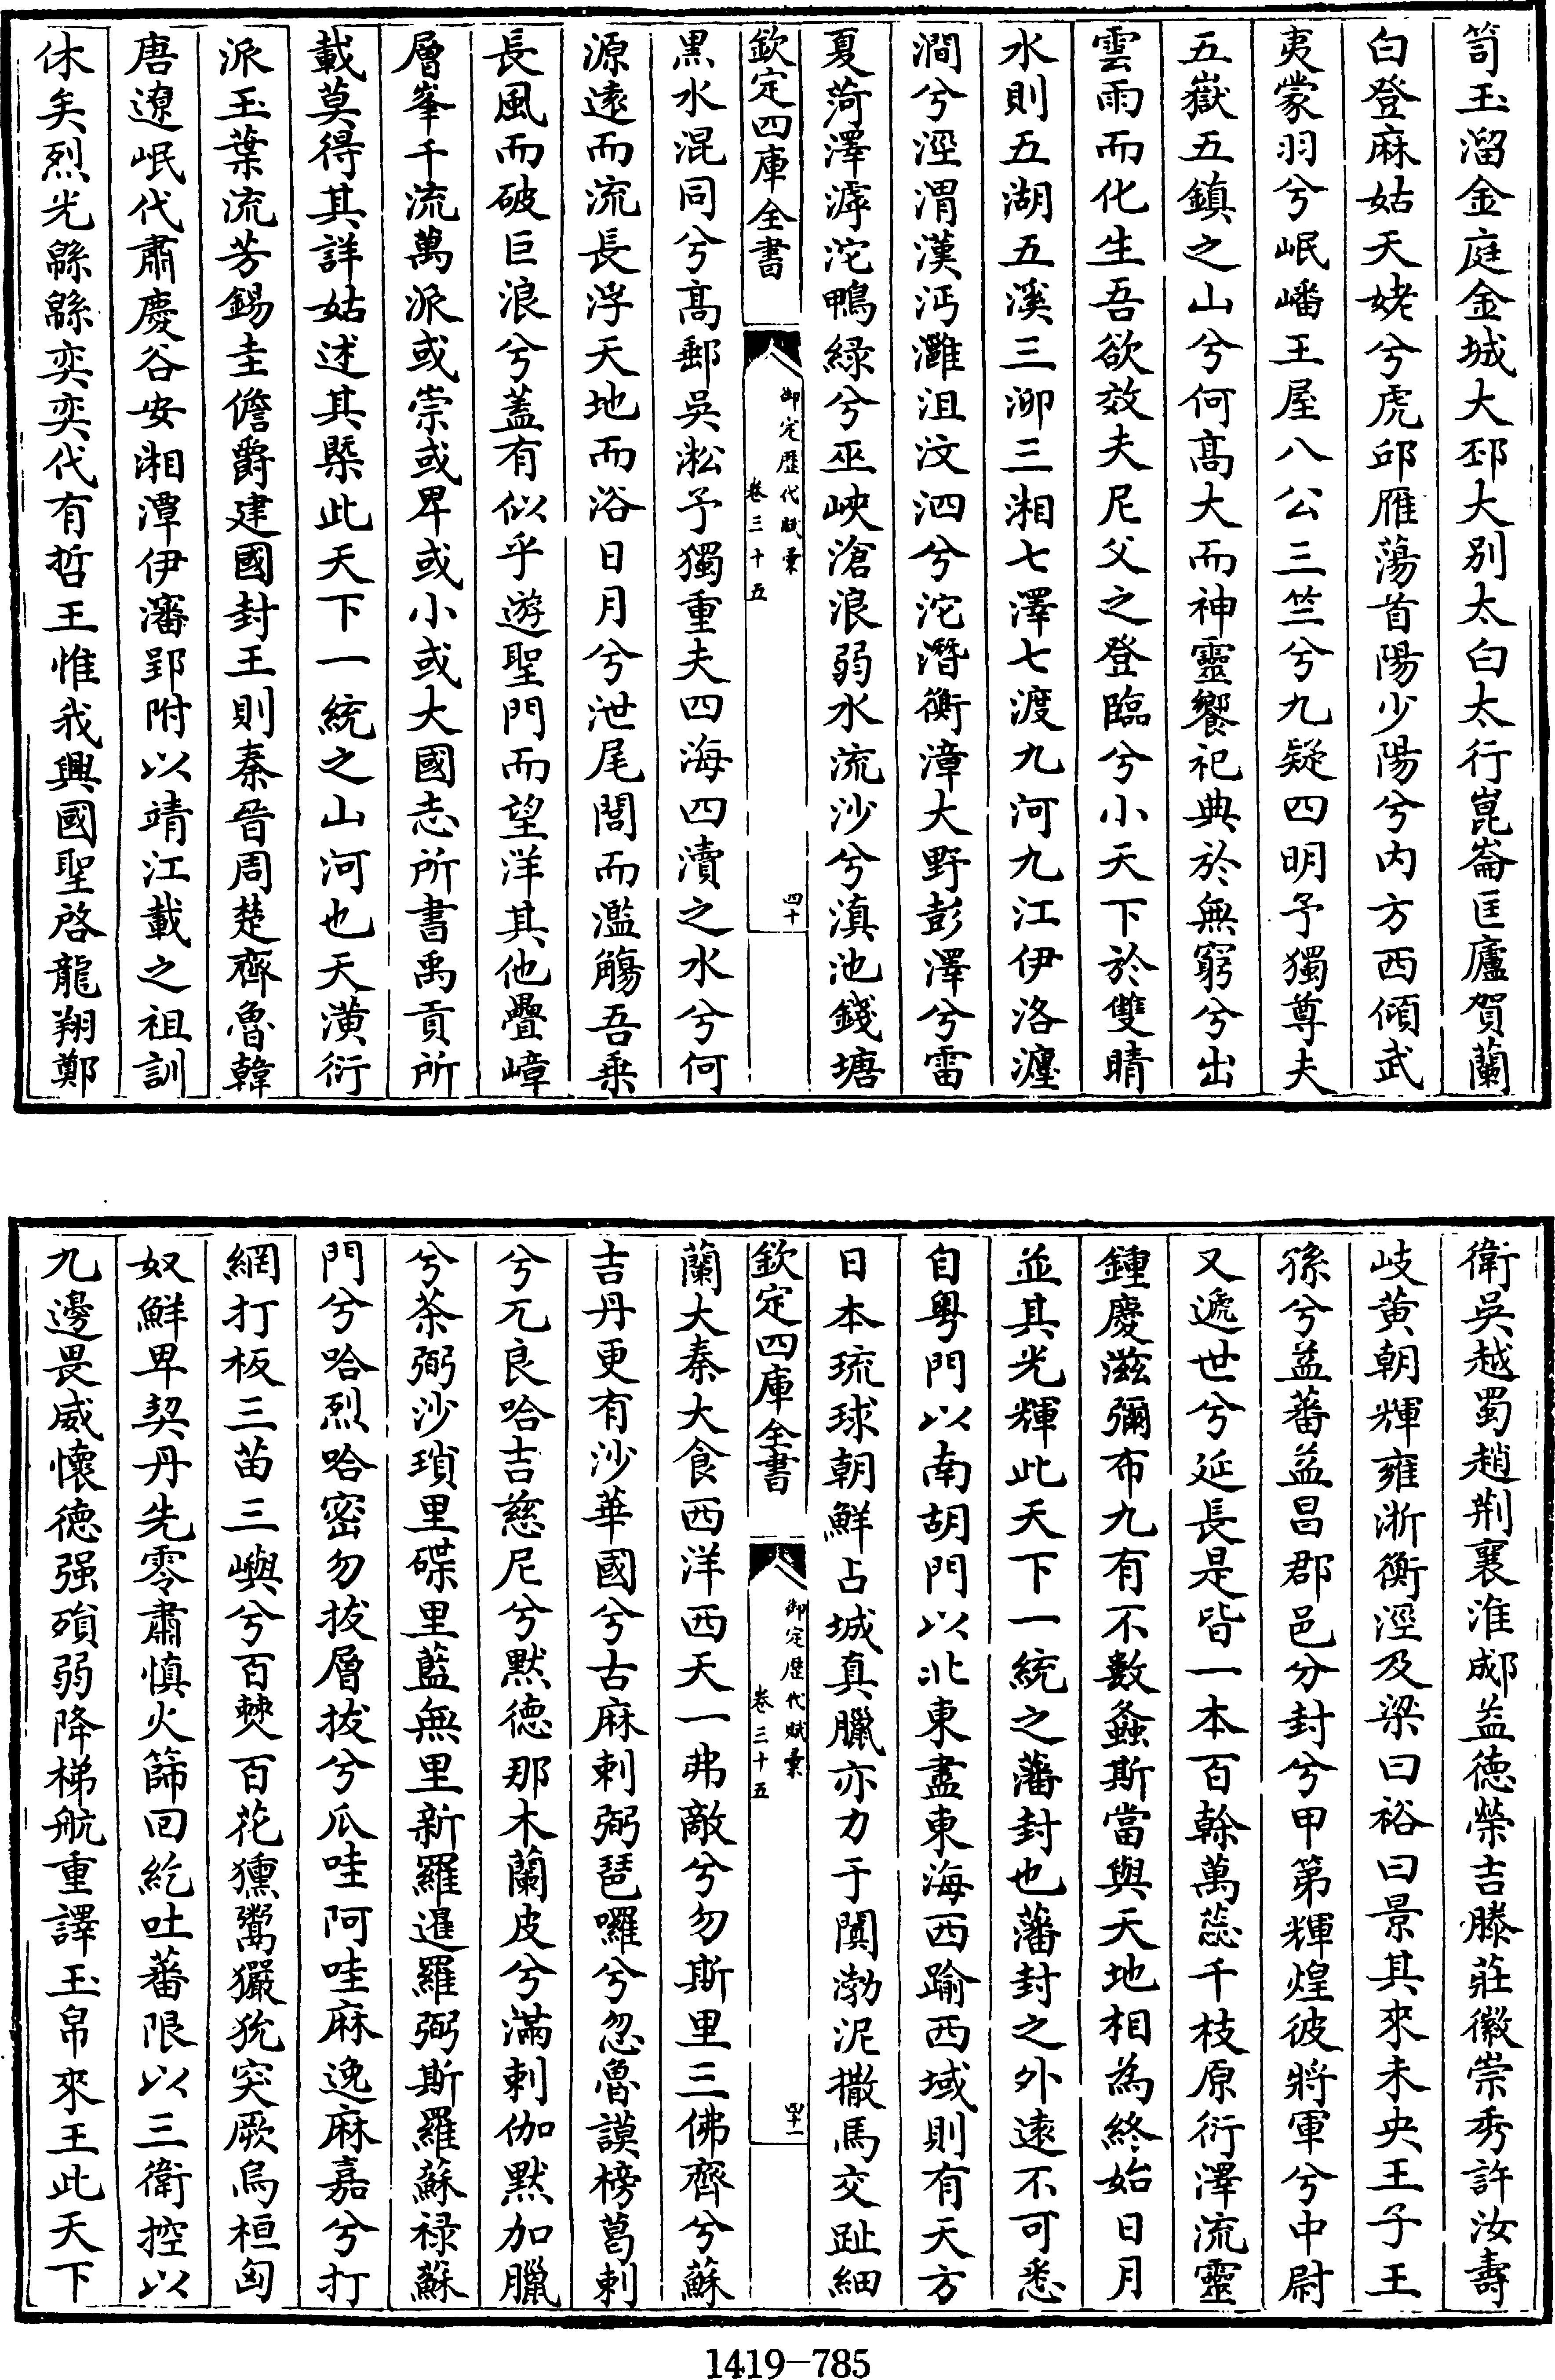 笥玉溜金庭金城大邳大别太白太行崑崙匡廬賀蘭
白登麻姑天姥兮虎邱雁蕩首陽少陽兮内方西傾武
夷蒙羽兮岷嶓王屋八公三竺兮九疑四明予獨尊夫
五嶽五鎮之山兮何髙大而神靈饗祀典於無窮兮出
雲雨而化生吾欲效夫尼父之登臨兮小天下於雙睛
水則五湖五溪三泖三湘七澤七渡九河九江伊洛瀍
澗兮涇渭漢沔灘沮汶泗兮沱潛衡漳大野彭澤兮雷
夏菏澤滹沱鴨緑兮巫峽滄浪弱水流沙兮滇池錢塘
欽定四庫全書
御定歴代賦彙
卷三十五
四十
黒水混同兮髙郵吳淞予獨重夫四海四瀆之水兮何
源遠而流長浮天地而浴日月兮泄尾閭而濫觴吾乗
長風而破巨浪兮蓋有似乎遊聖門而望洋其他疊嶂
層峯千流萬派或崇或卑或小或大國志所書禹貢所
載莫得其詳姑述其槩此天下一統之山河也天潢衍
派玉葉流芳錫圭儋爵建國封王則秦晉周楚齊魯韓
唐遼岷代肅慶谷安湘潭伊瀋郢附以靖江載之祖訓
休矣烈光緜緜奕奕代有哲王惟我興國聖啓龍翔鄭
衛吳越蜀趙荆襄淮郕益德榮吉滕莊徽崇秀許汝壽
岐黄朝輝雍浙衡涇及梁曰裕曰景其來未央王子王
孫兮益蕃益昌郡邑分封兮甲第輝煌彼將軍兮中尉
又遞世兮延長是皆一本百榦萬蕊千枝原衍澤流靈
鍾慶滋彌布九有不數螽斯當與天地相為終始日月
並其光輝此天下一統之藩封也藩封之外遠不可悉
自粤門以南胡門以北東盡東海西踰西域則有天方
日本琉球朝鮮占城真臘亦力于闐渤泥撒馬交趾細
欽定四庫全書
御定歴代賦彙
卷三十五
四十一
蘭大秦大食西洋西天一弗敵兮勿斯里三佛齊兮蘇
吉丹更有沙華國兮古麻剌弼琶囉兮忽魯謨榜葛剌
兮兀良哈吉慈尼兮黙德那木蘭皮兮滿剌伽黙加臘
兮茶弼沙瑣里碟里藍無里新羅暹羅弼斯羅蘇禄蘇
門兮哈烈哈密勿拔層拔兮瓜哇阿哇麻逸麻嘉兮打
網打板三苗三嶼兮百僰百花獯鬻玁狁突厥烏桓匈
奴鮮卑契丹先零肅慎火篩回紇吐蕃限以三衛控以
九邊畏威懷徳强殞弱降梯航重譯玉帛來王此天下
1419—785